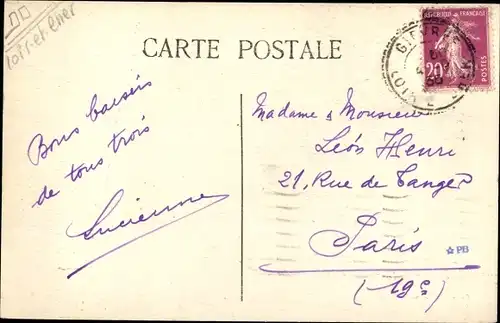 Loir-et-Cher
CARTE POSTALE
REPUBLIQUE FRANÇAISE
20c
POSTES
GIEVRES
Bons baisers
de tous trois
Lucienne
Madame & Monsieur
Léon Henri
21, Rue de Tanger
Paris
(19e)
☆PB